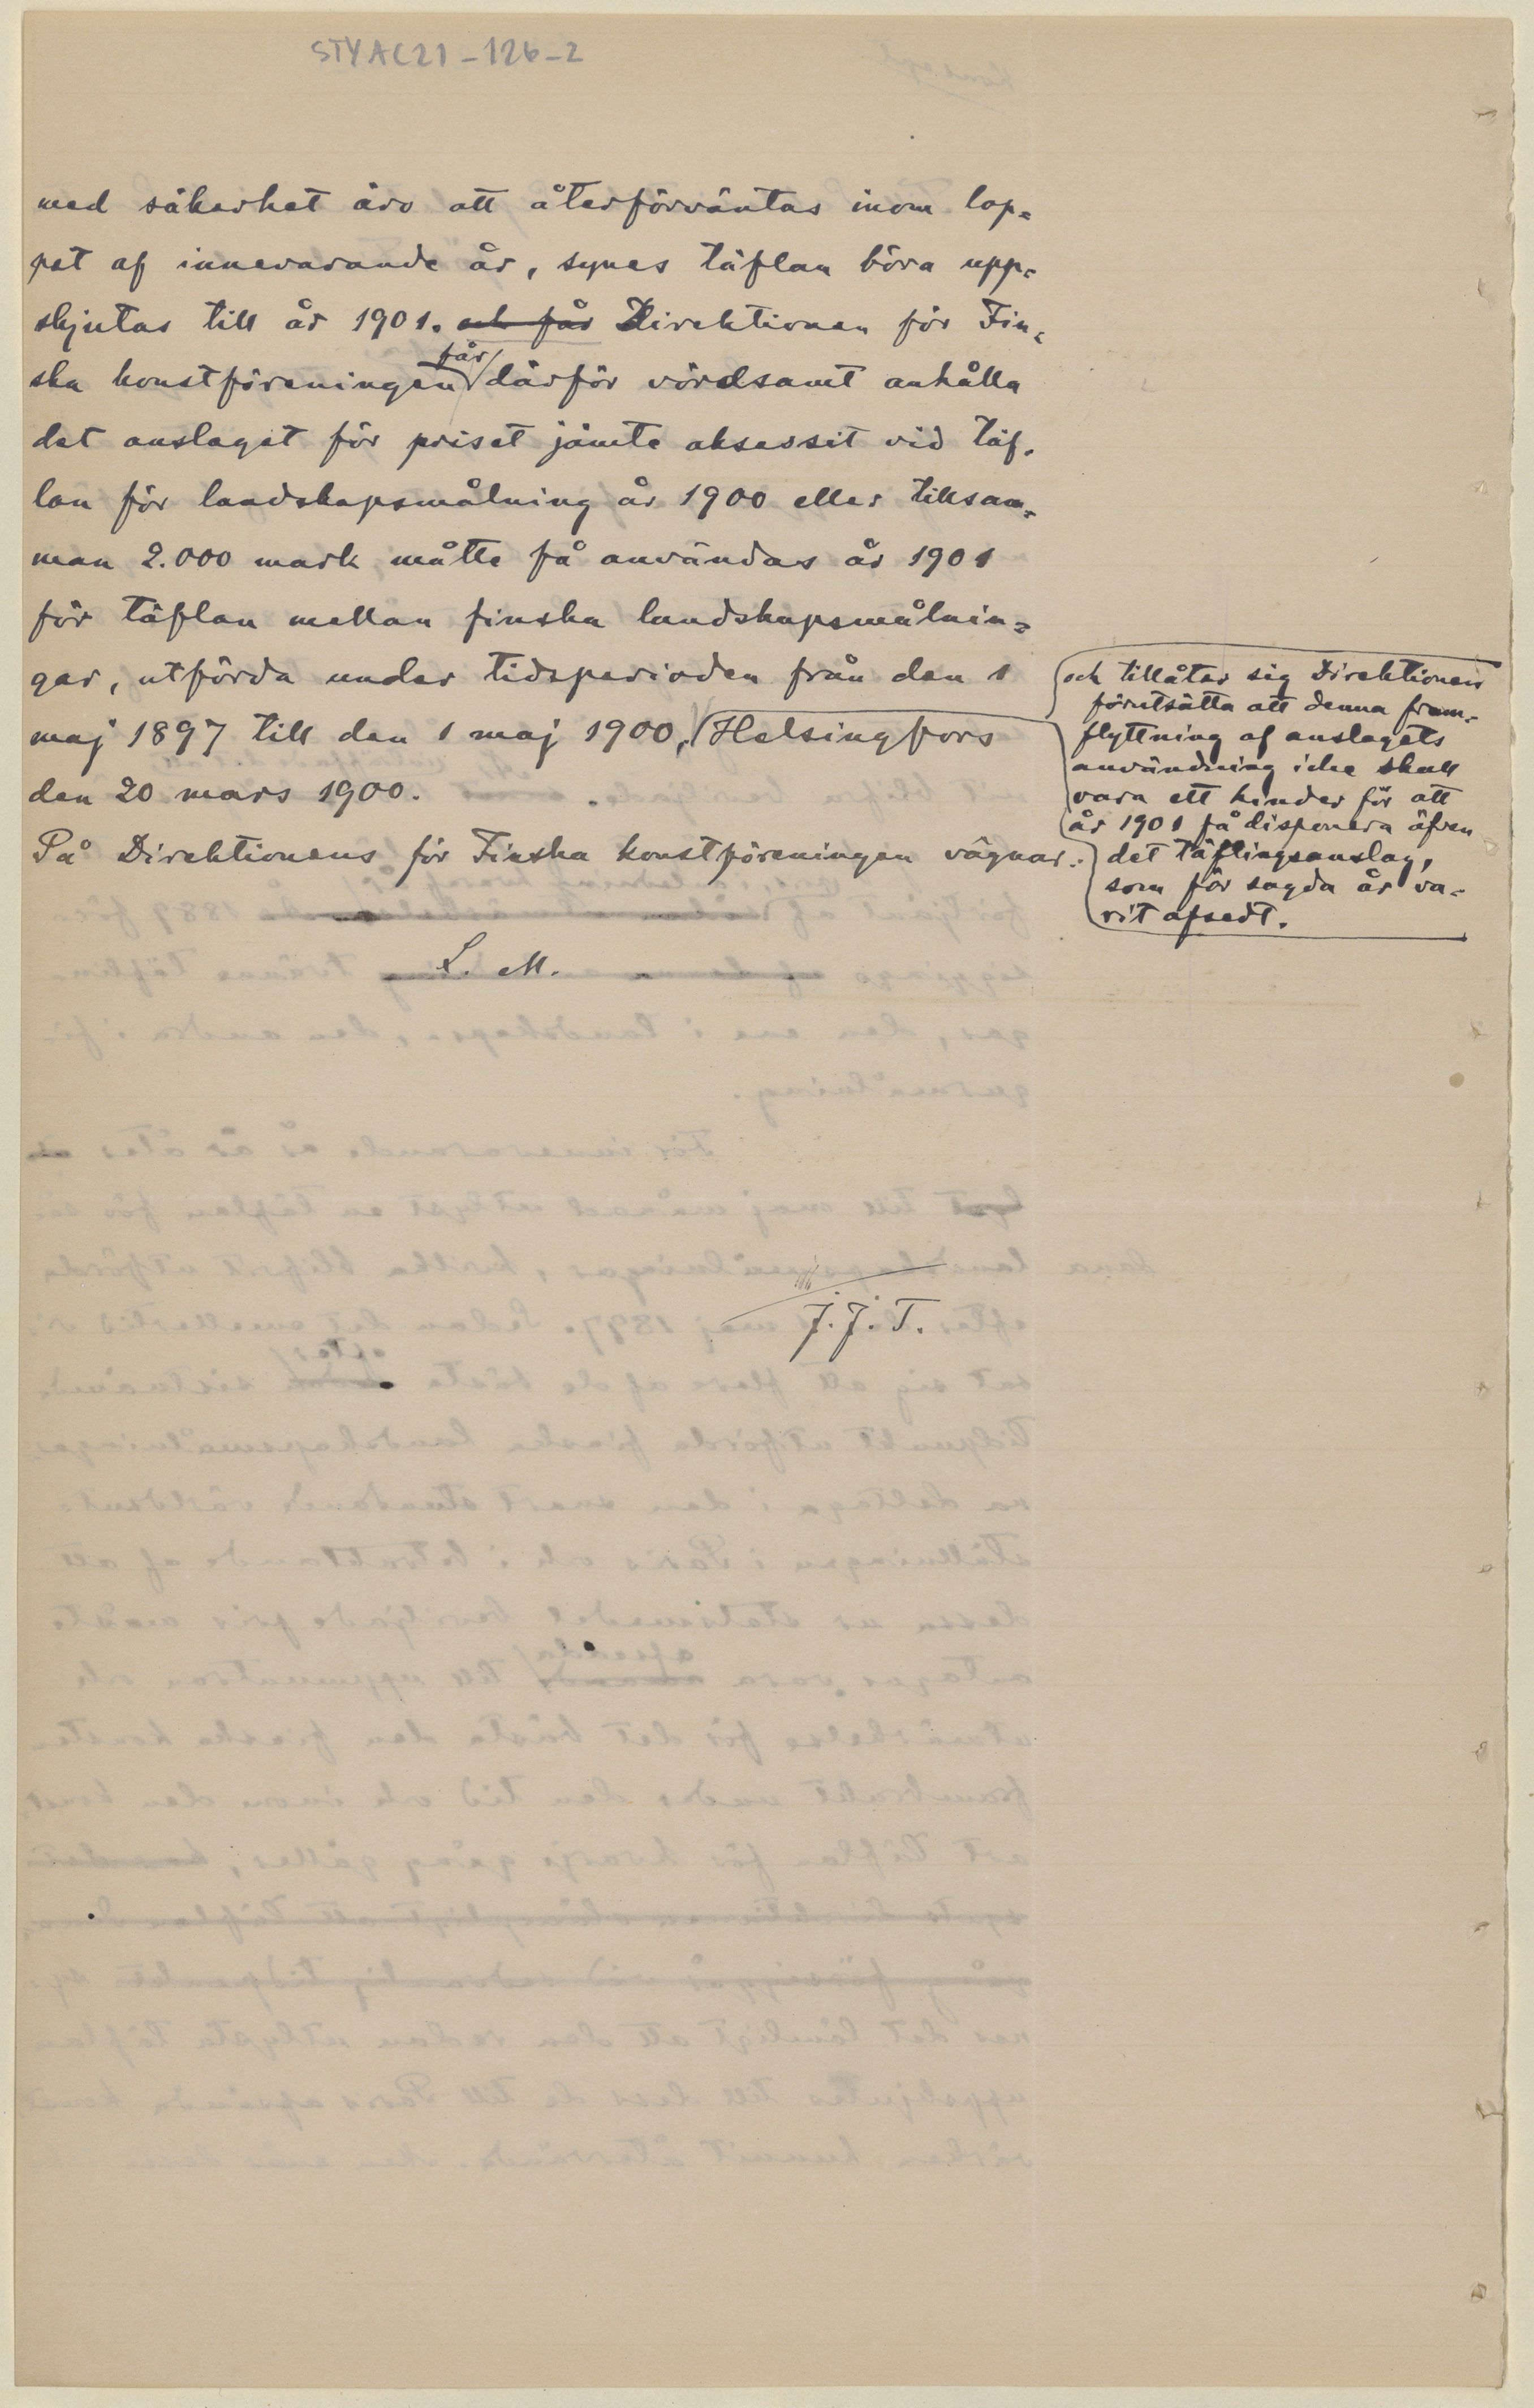 STYAC21-126-2
med säkerhet äro att återförväntas inom lop=
pet af innevarande år, synes täflan böra upp=
skjutas till år 1901. och får Direktionen för Fin=
får
ska konstföreningen därför vördsamt anhålla
det anslaget för priset jämte aksessit vid täf=
lan för landskapsmålning år 1900 eller tillsam=
man 2.000 mark måtte få användas år 1901
för täflan mellan finska landskapsmålnin=
gar, utförda under tidsperioden från den 1
maj 1897 till den 1 maj 1900, Helsingfors
den 20 mars 1900.
På Direktionens för Finska konstföreningen vägnar:
och tillåter sig Direktionen
förutsätta att denna fram=
flyttning af anslagets
användning icke skall
vara ett hinder för att
år 1901 få disponera äfven
det täflingsanslag,
som för sagda år va=
rit afsedt.
L. M.
J. J. T.